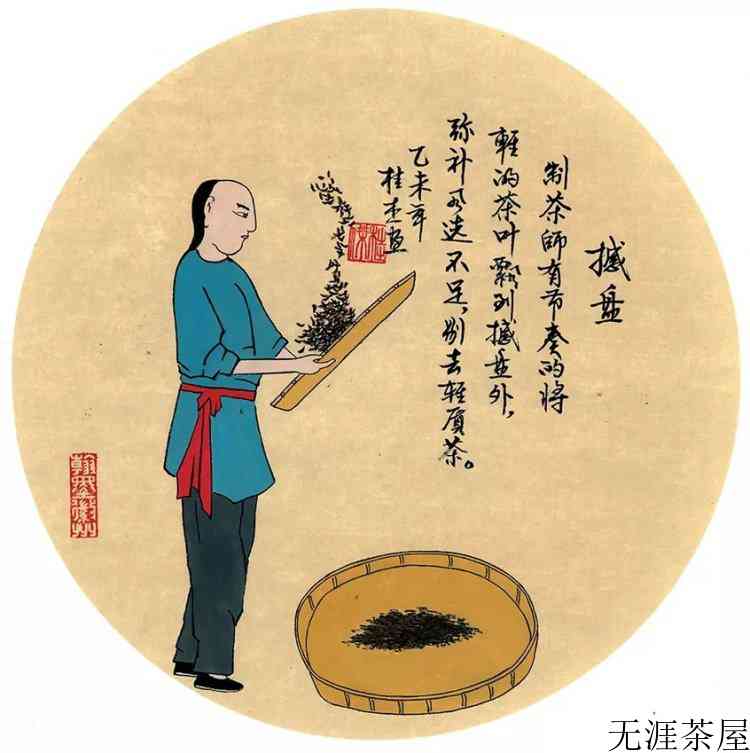 撼盘
制茶師有节奏的将
輕的茶叶飘到撼盘外，
弥补风选不足，剔去轻质茶。
乙未年
桂杰画
无涯茶屋